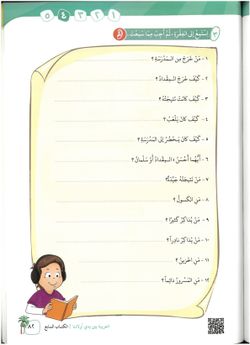 ١ ٢ ٣ ٤ ٥
٣ اِسْتَمِعْ إِلَى الفِقْرَةِ، ثُمَّ أَجِبْ مِمَّا سَمِعْتَ:
١ - مَنْ خَرَجَ مِنَ المَدْرَسَةِ؟
٢ - كَيْفَ خَرَجَ المِقْدَادُ؟
٣ - كَيْفَ كَانَتْ نَتِيجَتُهُ؟
٤ - كَيْفَ كَانَ يَلْعَبُ؟
٥ - كَيْفَ كَانَ يَحْضُرُ إِلَى المَدْرَسَةِ؟
٦ - أَيُّهُمَا أَحْسَنُ: المِقْدَادُ أَوْ سَلْمَانُ؟
٧ - مَنْ نَتِيجَتُهُ جَيِّدَةٌ؟
٨ - مَنِ الكَسُولُ؟
٩ - مَنْ يُذَاكِرُ كَثِيرًا؟
١٠ - مَنْ يُذَاكِرُ نَادِراً؟
١١ - مَنِ الحَزِينُ؟
١٢ - مَنِ المَسْرُورُ دَائِماً؟
العربية بين يدي أولادنا | الكتاب السابع
٨٢